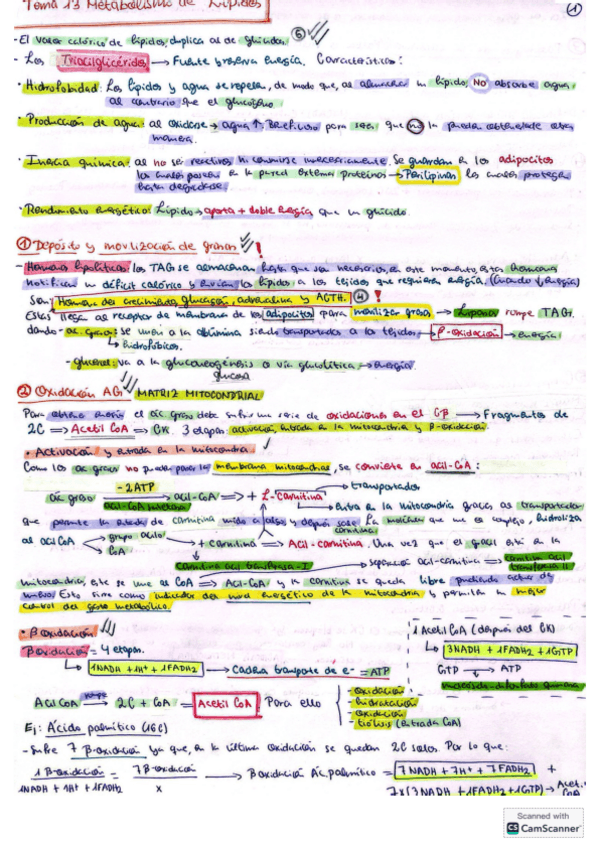 Tema 13 Metabolismo de Lípidos
1
- El valor calórico de lípidos, duplica al de glúcidos. 5
- Los Triacilglicéridos → Fuente y reserva energía. Características:
· Hidrofobicidad: Los lípidos y agua se repelen, de modo que, al almacenar un lípido, NO absorbe agua,
al contrario que el glucógeno
· Producción de agua: al oxidarse → agua ↑. Beneficioso para seres que no la puedan obtener de otra
manera.
· Inercia química: al no ser reactivos ni consumirse innecesariamente. Se guardan en los adipocitos
los cuales poseen en la pared externa proteínas → Perilipinas las cuales protegen
hasta degradarse.
· Rendimiento energético: Lípido → aporta + doble energía que un glúcido.
① Depósito y movilización de grasas !
- Hormonas lipolíticas: los TAG se almacenan hasta que son necesarios, en este momento, estas hormonas
notifican un déficit calórico y envían los lípidos a los tejidos que requieren energía. (Cuando ↓ energía)
Son: Hormona del crecimiento, glucagón, adrenalina y ACTH. 4 !
Estas llegan al receptor de membrana de los adipocitos para movilizar grasa → Lipasa rompe TAG,
dando - ac. graso: se unen a la albúmina siendo transportados a la tejidos → β-oxidación → energía.
↳ hidrofóbicos.
- glicerol: va a la gluconeogénesis o vía glucolítica → energía.
glucosa
② Oxidación AG MATRIZ MITOCONDRIAL
Para obtener energía el ác graso debe sufrir una serie de oxidaciones en el Cβ → Fragmentos de
2C ⇒ Acetil CoA ⇒ CK. 3 etapas: activación, entrada en la mitocondria y β-oxidación.
• Activación y entrada en la mitocondria.
Como los ac grasos no pueden pasar la membrana mitocondrial, se convierte en acil-CoA:
-2ATP
→ transportador
ác graso → acil-CoA ⇒ + L-Carnitina
acil-CoA sintetasa
→ entra en la mitocondria gracias al transportador
que permite la entrada de carnitina unida a algo y después sale la
carnitina
al acil CoA
grupo acilo
CoA
+ carnitina ⇒ Acil-carnitina. Una vez que el está en la
carnitina acil transferasa-I
→ separación acil-carnitina ⇒ carnitina acil
transferasa II
mitocondria, este se une al CoA ⇒ Acil-CoA y la carnitina se queda libre pudiendo actuar de
nuevo. Esto sirve como indicador del nivel energético de la mitocondria y permite un mejor
control del gasto metabólico.
• β oxidación
β oxidación = 4 etapas.
↳ 1NADH + 1H+ + 1FADH2 → Cadena transporte de e- = ATP
1 Acetil CoA (después del CK)
↳ 3NADH + 1FADH2 + 1GTP
GTP → ATP
nucleósido-difosfato quinasa
Acil CoA rompe → 2C + CoA = Acetil CoA Para ello
- oxidación
- hidratación
- oxidación
- tiólisis (Entrada CoA)
Ej: Ácido palmítico (16C)
- Sufre 7 β-oxidación ya que, en la última oxidación se quedan 2C solos. Por lo que:
1 β-oxidación = 7 β-oxidación → β oxidación Ác. palmítico = 7 NADH + 7H+ + 7 FADH2 +
1NADH + 1H+ + 1FADH2 x
7x(3 NADH + 1FADH2 + 1GTP) → Acetil
CoA
Scanned with
CS CamScanner